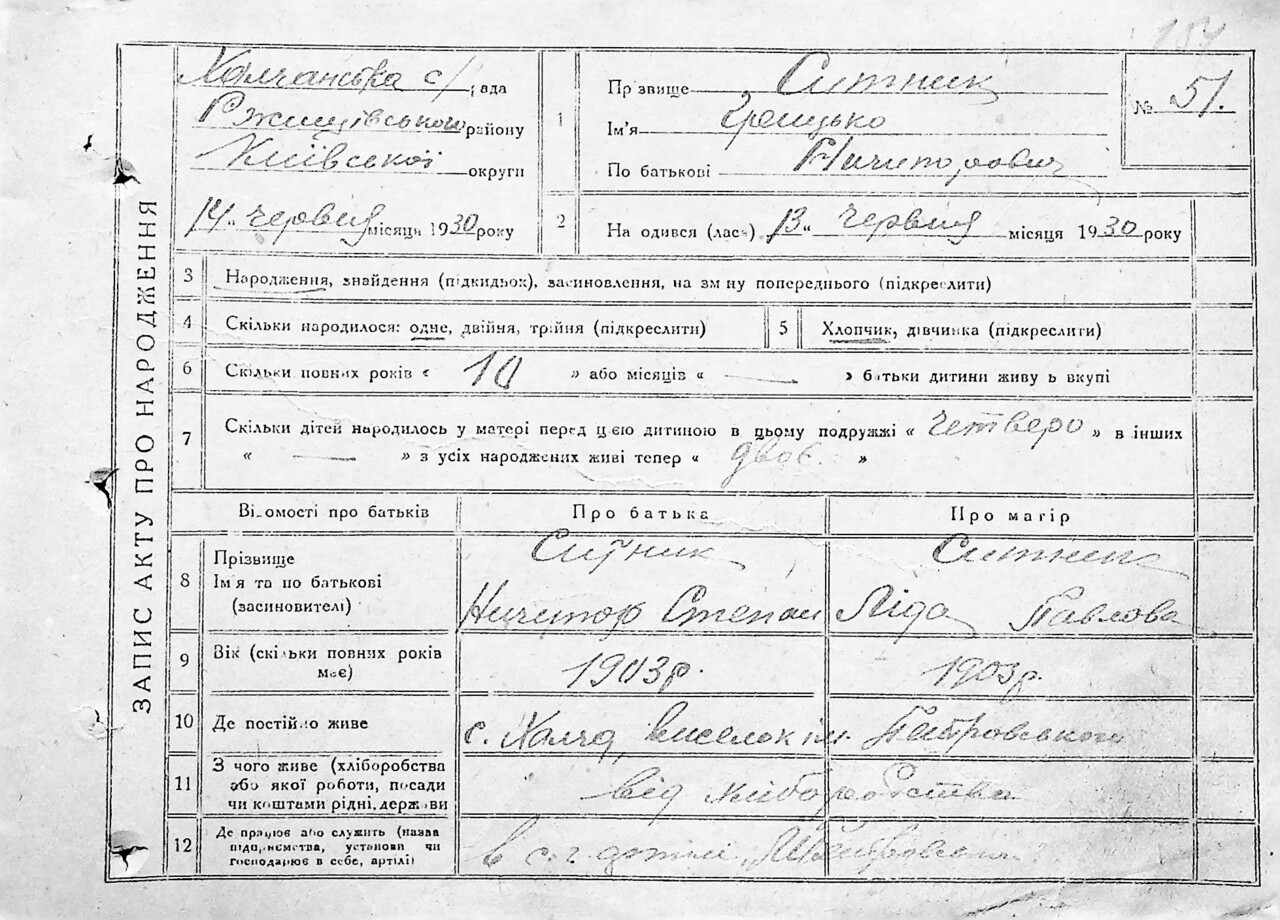 104
ЗАПИС АКТУ ПРО НАРОДЖЕННЯ
Халчанська с/рада
Ржищівського району
Київської округи
14 „ червня місяця 1930 року
1
Прізвище Ситник
Ім'я Грицько
По батькові Ничипорович
№ 51.
2
На одився (лася) 13 „ червня місяця 1930 року
3 Народження, знайдення (підкидьок), засиновлення, на зміну попереднього (підкреслити)
4 Скільки народилося: одне, двійня, трійня (підкреслити)
5 Хлопчик, дівчинка (підкреслити)
6 Скільки повних років « 10 » або місяців « — » батьки дитини живуть вкупі
7 Скільки дітей народилось у матері перед цією дитиною в цьому подружжі « четверо » в інших
« — » з усіх народжених живі тепер « двоє »
Відомості про батьків Про батька Про матір
8 Прізвище
Ім'я та по батькові
(засиновителі)
Ситник
Ничипор Степан
Ситник
Ліда Павлова
9 Вік (скільки повних років
має)
1903р. 1903р.
10 Де постійно живе с. Халча, виселок ім. Петровського
11 З чого живе (хліборобства
або якої роботи, посади
чи коштами рідні, держави
від хліборобства
12 Де працює або служить (назва
підприємства, установи чи
господарює в себе, артілі)
в с.г. артілі